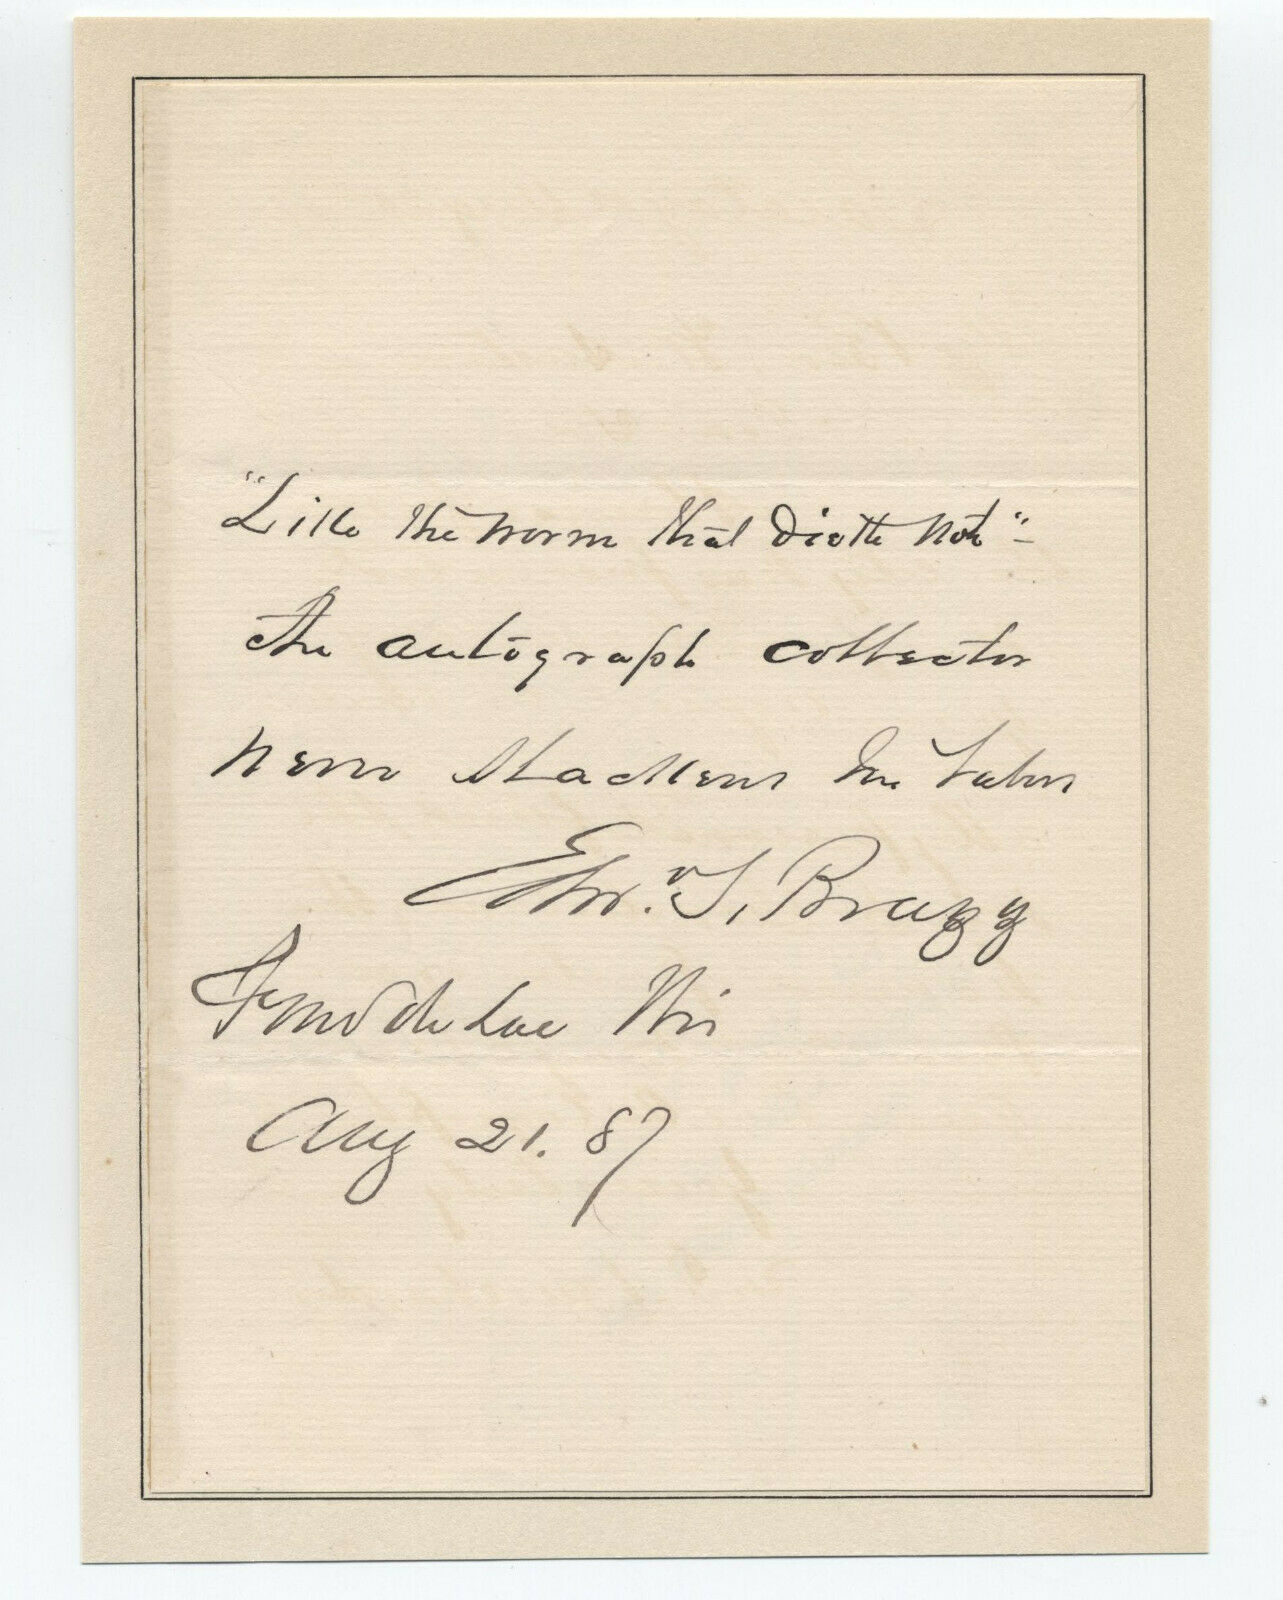 "Like the worm that Dieth not" -
the autograph collector
never slackens his labors
Edw. S. Bragg
Fond du Lac Wis
Aug 21. 87